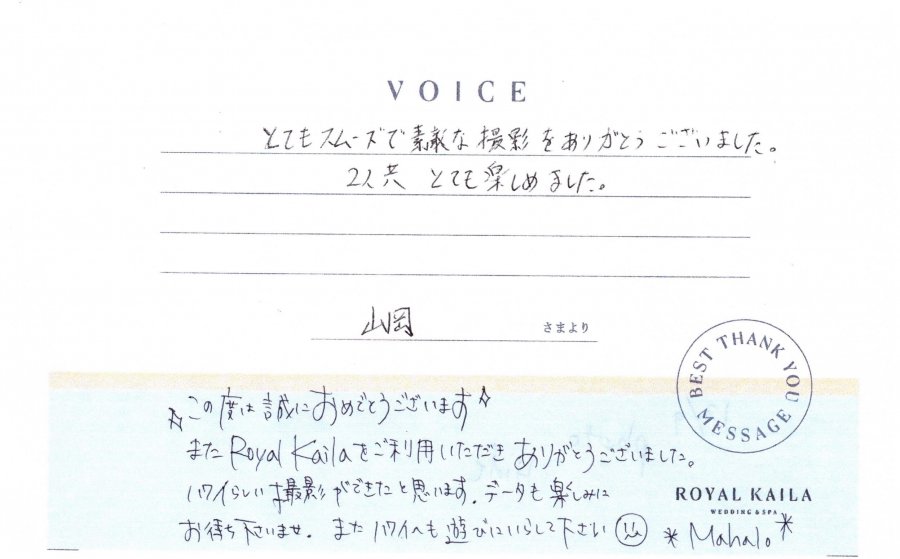 VOICE
とてもスムーズで素敵な撮影をありがとうございました。
2人共 とても楽しめました。
山岡 さまより
BEST THANK YOU MESSAGE
☆この度は誠におめでとうございます☆
またRoyal Kailaをご利用いただきありがとうございました。
ハワイらしい撮影ができたと思います。データも楽しみに
お待ち下さいませ。またハワイへも遊びにいらして下さい
ROYAL KAILA
WEDDING & SPA
*Mahalo*